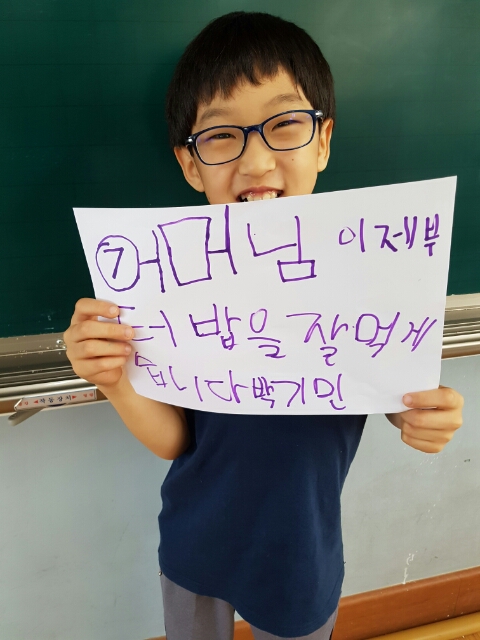 ⑦ 어머님 이제부
터 밥을 잘먹게
습니다 박기민